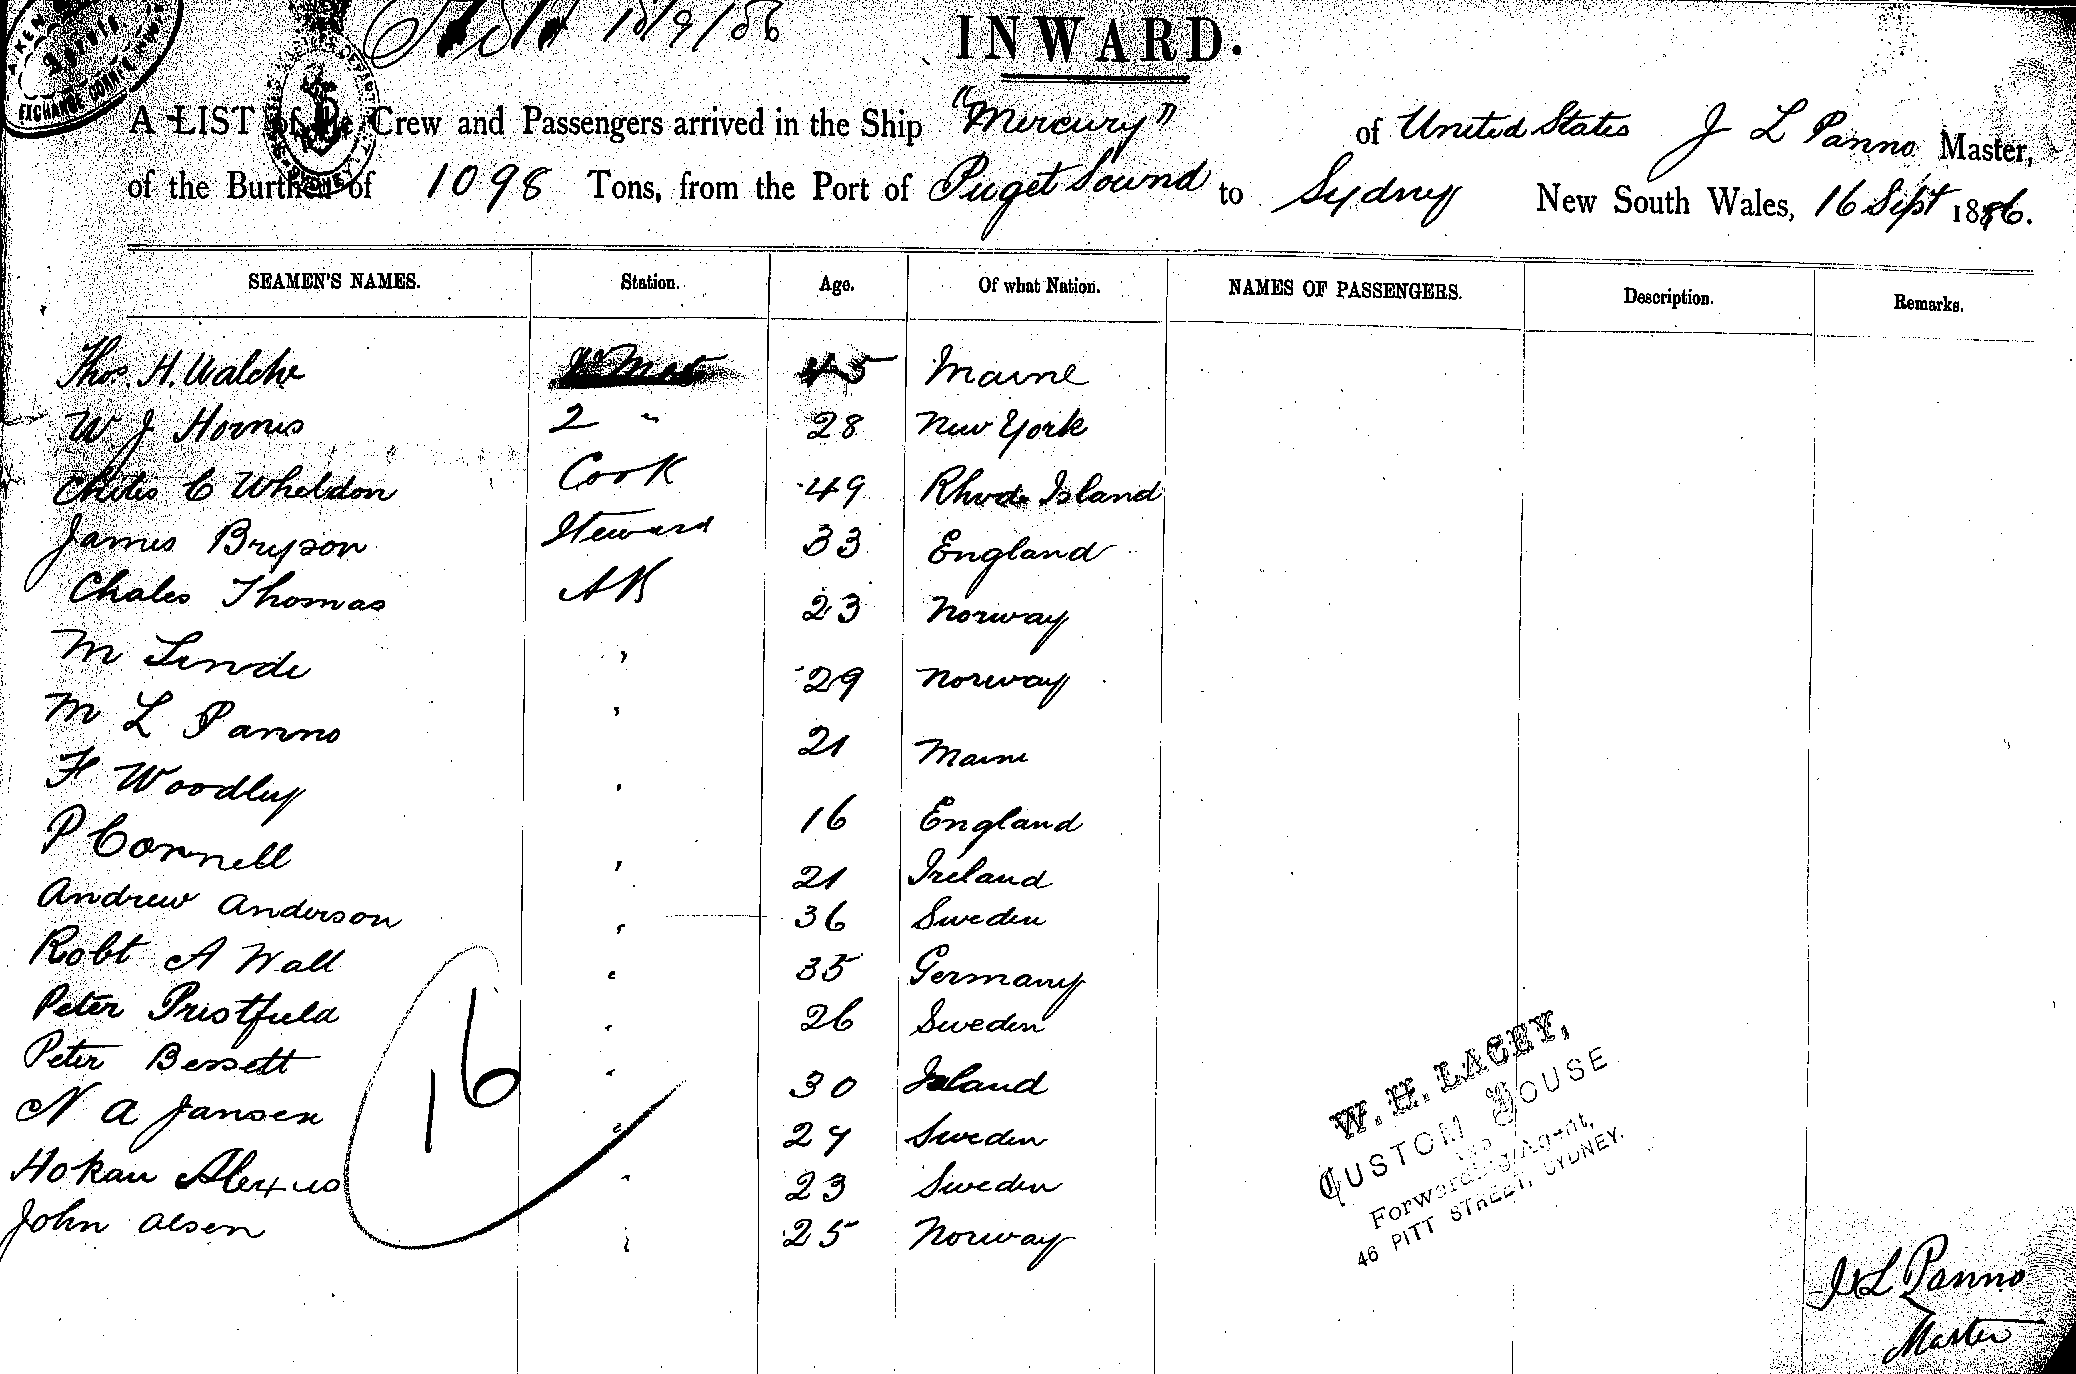 18/9/86
INWARD.
EXCHANGE
A LIST of the Crew and Passengers arrived in the Ship "Mercury" of United States J L Panno Master,
of the Burthen of 1098 Tons, from the Port of Puget Sound to Sydney New South Wales, 16 Sept 1886.
SEAMEN'S NAMES. Station. Age. Of what Nation. NAMES OF PASSENGERS. Description. Remarks.
Thos. H. Walche Mate 45 Maine
W J Hornis 2 " 28 New York
C Wheldon Cook 49 Rhode Island
James Bryson Steward 33 England
Chales Thomas AB 23 Norway
M Linde " 29 Norway
M L Panno " 21 Maine
F Woodley " 16 England
P Cornell " 21 Ireland
Andrew Anderson " 36 Sweden
Robt A Wall " 35 Germany
Peter Pristfield " 26 Sweden
Peter Bessett " 30 Island
N A Jansen " 27 Sweden
Hokan " 23 Sweden
John Olsen " 25 Norway
16
W. H. LACEY,
CUSTOM HOUSE
AND
Forwarding Agent,
46 PITT STREET, SYDNEY.
J L Panno
Master